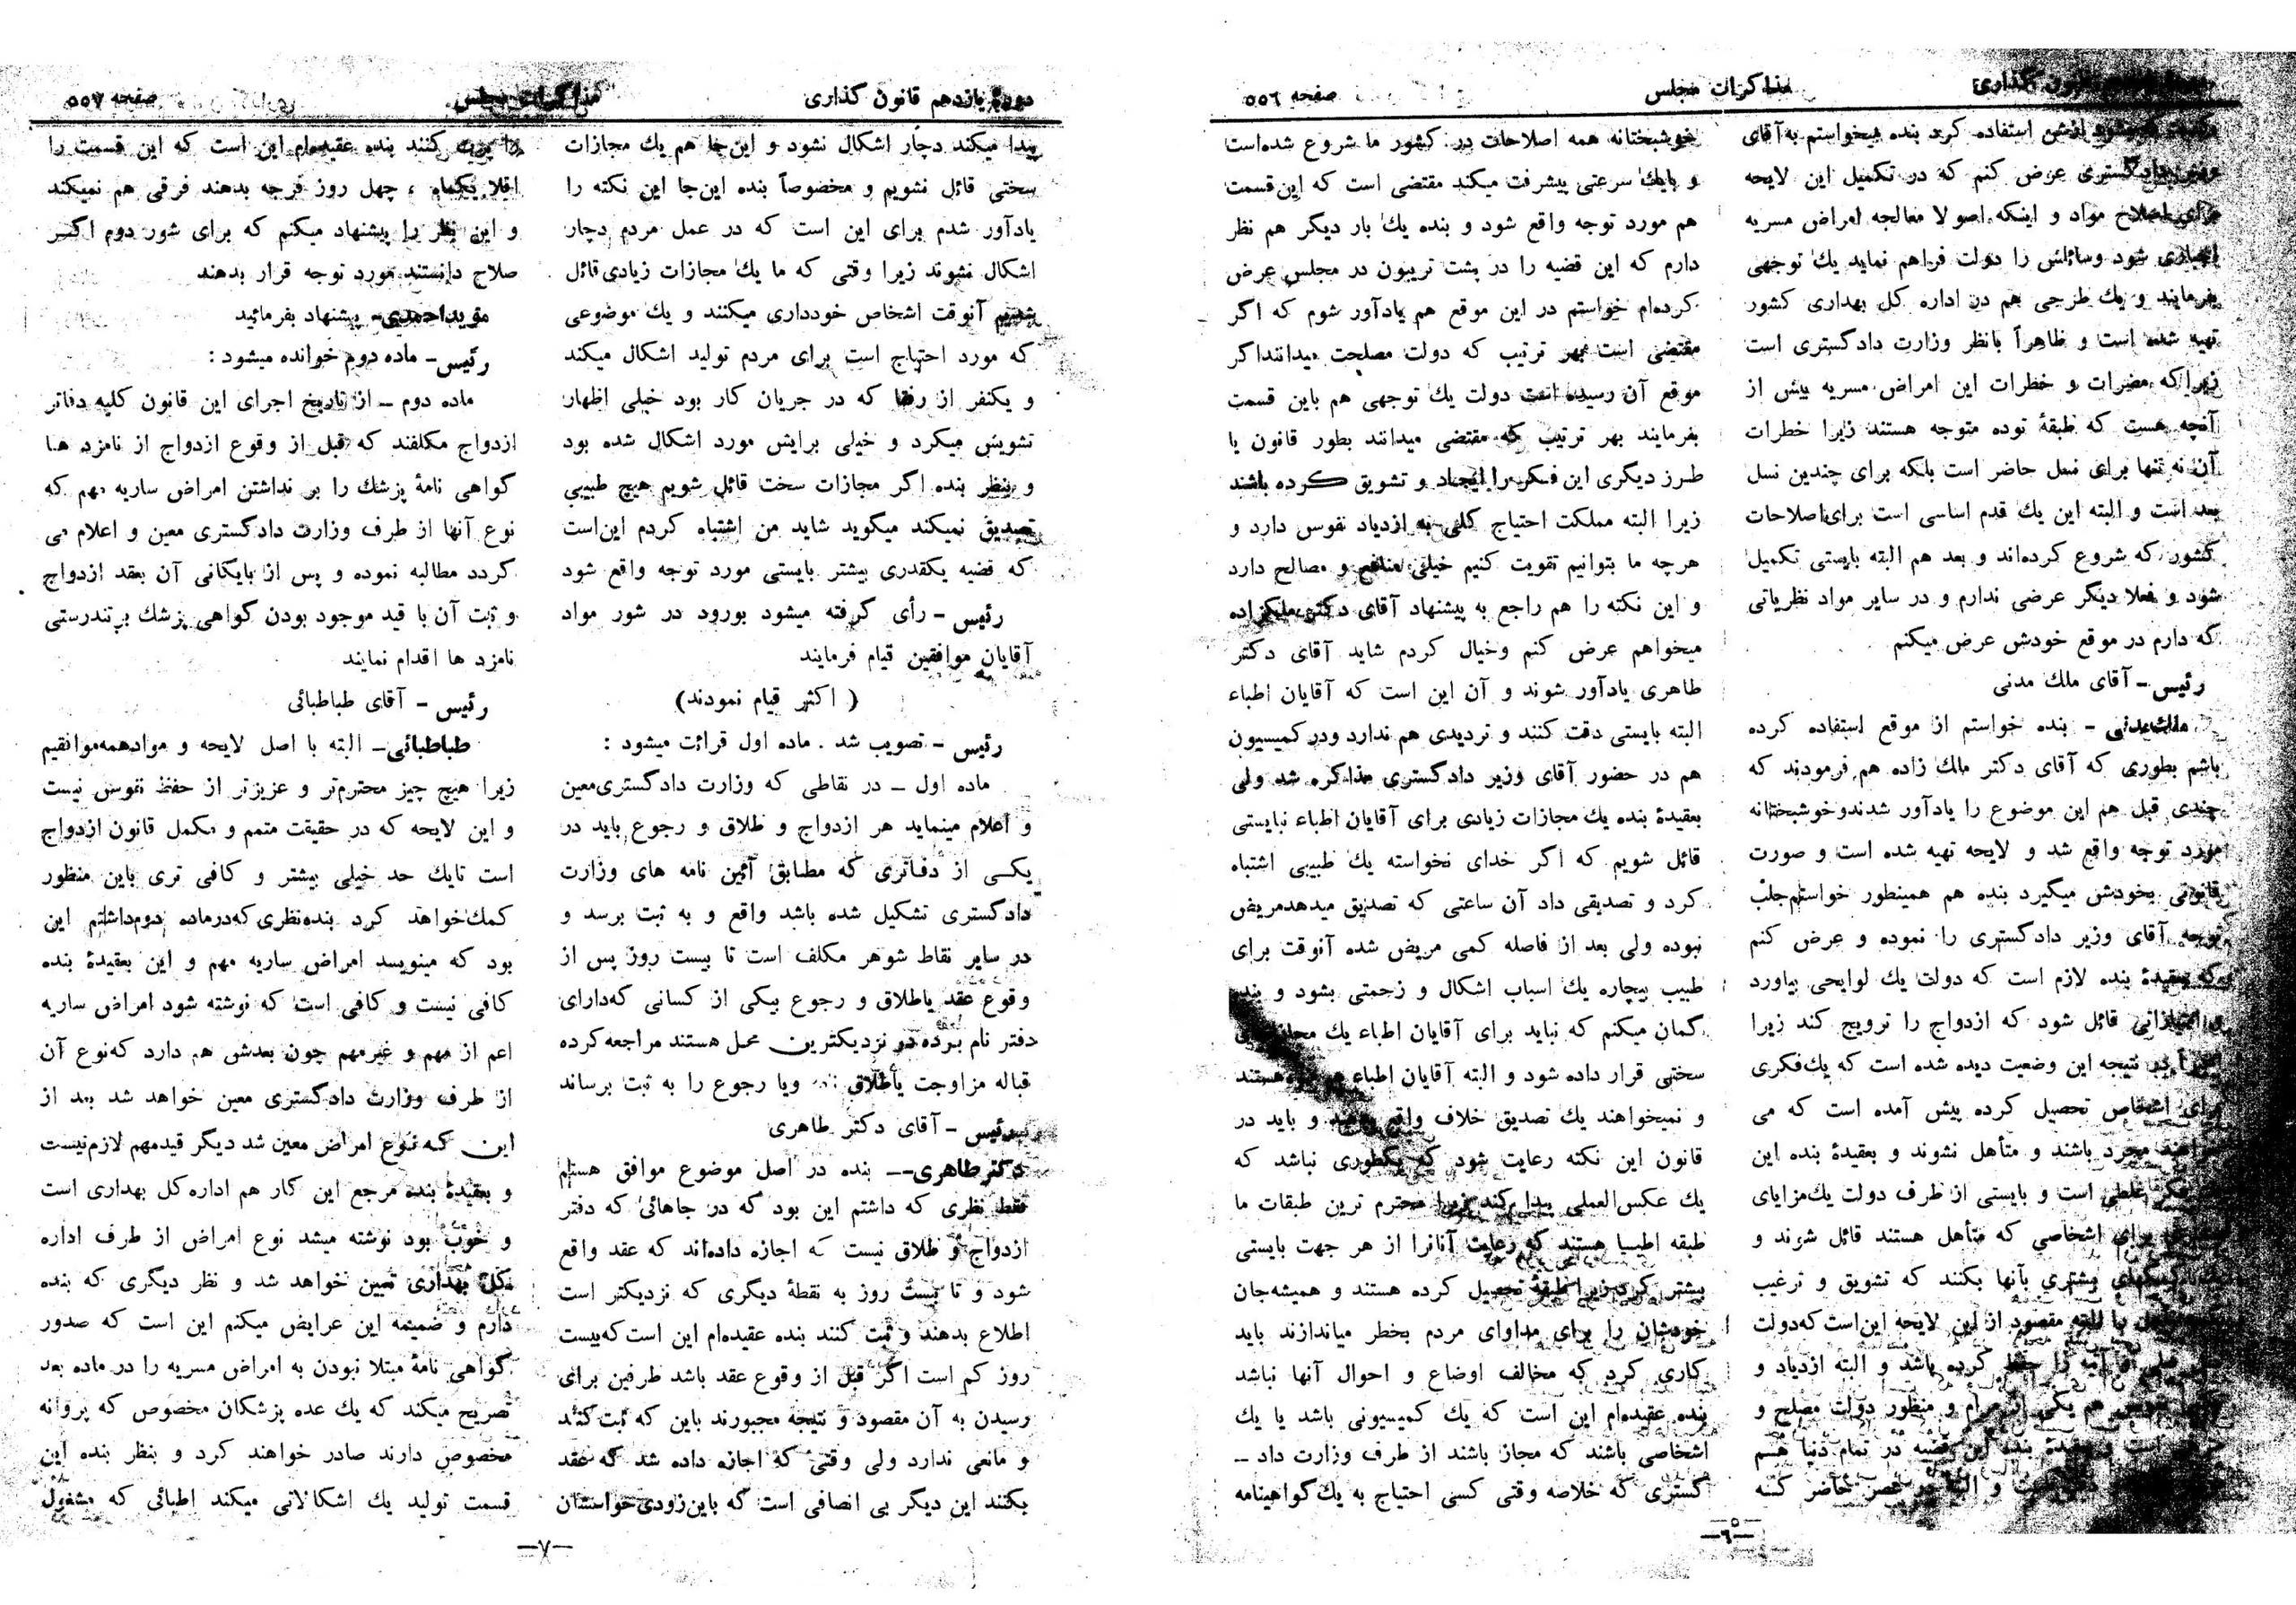 قانون گذاری
مذاکرات مجلس
صفحه ۵۵۶
استفاده کرد بنده میخواستم به آقای
وزیر دادگستری عرض کنم که در تکمیل این لایحه
برای اصلاح مواد و اینکه اصولا معالجه امراض مسریه
اجباری شود وسائلش را دولت فراهم نماید یك توجهی
بفرمایند و یك طرحی هم در اداره کل بهداری کشور
تهیه شده است و ظاهراً بانظر وزارت دادگستری است
زیرا که مضرات و خطرات این امراض مسریه بیش از
آنچه هست که طبقهٔ توده متوجه هستند زیرا خطرات
آن نه تنها برای نسل حاضر است بلکه برای چندین نسل
بعد است و البته این یك قدم اساسی است برای اصلاحات
کشور که شروع کرده‌اند و بعد هم البته بایستی تکمیل
شود و فعلا دیگر عرضی ندارم و در سایر مواد نظریاتی
که دارم در موقع خودش عرض میکنم
رئیس - آقای ملك مدنی
ملك مدنی - بنده خواستم از موقع استفاده کرده
باشم بطوری که آقای دکتر ملك زاده هم فرمودند که
چندی قبل هم این موضوع را یادآور شدند و خوشبختانه
مورد توجه واقع شد و لایحه تهیه شده است و صورت
قانونی بخودش میگیرد بنده هم همینطور خواستم جلب
توجه آقای وزیر دادگستری را نموده و عرض کنم
که بعقیدهٔ بنده لازم است که دولت یك لوایحی بیاورد
و امتیازاتی قائل شود که ازدواج را ترویج کند زیرا
در نتیجه این وضعیت دیده شده است که یك فکری
برای اشخاص تحصیل کرده پیش آمده است که می
خواهند مجرد باشند و متأهل نشوند و بعقیدهٔ بنده این
فکر غلطی است و بایستی از طرف دولت یك مزایای
برای اشخاصی که متأهل هستند قائل شوند و
بیشتری بآنها بکنند که تشویق و ترغیب
را البته مقصود از این لایحه این است که دولت
را حفظ کرده باشد و البته ازدیاد و
هم یکی از مرام و منظور دولت مصلح و
بعقیدهٔ بنده این قضیه در تمام دنیا هم
است و البته در عصر حاضر که
خوشبختانه همه اصلاحات در کشور ما شروع شده است
و با یك سرعتی پیشرفت میکند مقتضی است که این قسمت
هم مورد توجه واقع شود و بنده یك بار دیگر هم نظر
دارم که این قضیه را در پشت تریبون در مجلس عرض
کرده‌ام خواستم در این موقع هم یادآور شوم که اگر
مقتضی است بهر ترتیب که دولت مصلحت میدانند اگر
موقع آن رسیده است دولت یك توجهی هم باین قسمت
بفرمایند بهر ترتیب که مقتضی میدانند بطور قانون یا
طرز دیگری این فکر را ایجاد و تشویق کرده باشند
زیرا البته مملکت احتیاج کلی به ازدیاد نفوس دارد و
هرچه ما بتوانیم تقویت کنیم خیلی منافع و مصالح دارد
و این نکته را هم راجع به پیشنهاد آقای دکتر ملکزاده
میخواهم عرض کنم وخیال کردم شاید آقای دکتر
طاهری یادآور شوند و آن این است که آقایان اطباء
البته بایستی دقت کنند و تردیدی هم ندارد و در کمیسیون
هم در حضور آقای وزیر دادگستری مذاکره شد ولی
بعقیدهٔ بنده یك مجازات زیادی برای آقایان اطباء نبایستی
قائل شویم که اگر خدای نخواسته یك طبیبی اشتباه
کرد و تصدیقی داد آن ساعتی که تصدیق میدهد مریض
نبوده ولی بعد از فاصله کمی مریض شده آنوقت برای
طبیب بیچاره یك اسباب اشکال و زحمتی بشود و بنده
گمان میکنم که نباید برای آقایان اطباء یك مجازات
سختی قرار داده شود و البته آقایان اطباء هستند
و نمیخواهند یك تصدیق خلاف واقع بدهند و باید در
قانون این نکته رعایت شود که یکطوری نباشد که
یك عکس‌العملی پیدا کند زیرا محترم ترین طبقات ما
طبقه اطباء هستند که رعایت آنانرا از هر جهت بایستی
بیشتر کرد زیرا طبقهٔ تحصیل کرده هستند و همیشه جان
خودشان را برای مداوای مردم بخطر میاندازند باید
کاری کرد که مخالف اوضاع و احوال آنها نباشد
بنده عقیده‌ام این است که یك کمیسیونی باشد یا یك
اشخاصی باشند که مجاز باشند از طرف وزارت داد -
گستری که خلاصه وقتی کسی احتیاج به یك گواهینامه
-۶-
دورهٔ یازدهم قانون گذاری
مذاکرات مجلس
صفحه ۵۵۷
پیدا میکند دچار اشکال نشود و این‌جا هم یك مجازات
سختی قائل نشویم و مخصوصاً بنده این‌جا این نکته را
یادآور شدم برای این است که در عمل مردم دچار
اشکال نشوند زیرا وقتی که ما یك مجازات زیادی قائل
شدیم آنوقت اشخاص خودداری میکنند و یك موضوعی
که مورد احتیاج است برای مردم تولید اشکال میکند
و یکنفر از رفقا که در جریان کار بود خیلی اظهار
تشویش میکرد و خیلی برایش مورد اشکال شده بود
و بنظر بنده اگر مجازات سخت قائل شویم هیچ طبیبی
تصدیق نمیکند میگوید شاید من اشتباه کردم این‌است
که قضیه یکقدری بیشتر بایستی مورد توجه واقع شود
رئیس - رأی گرفته میشود بورود در شور مواد
آقایان موافقین قیام فرمایند
( اکثر قیام نمودند)
رئیس - تصویب شد . ماده اول قرائت میشود :
ماده اول - در نقاطی که وزارت دادگستری معین
و اعلام مینماید هر ازدواج و طلاق و رجوع باید در
یکی از دفاتری که مطابق آئین نامه های وزارت
دادگستری تشکیل شده باشد واقع و به ثبت برسد و
در سایر نقاط شوهر مکلف است تا بیست روز پس از
وقوع عقد یاطلاق و رجوع بیکی از کسانی که‌دارای
دفتر نام برده در نزدیکترین محل هستند مراجعه کرده
قباله مزاوجت یاطلاق نامه ویا رجوع را به ثبت برساند
رئیس - آقای دکتر طاهری
دکترطاهری - بنده در اصل موضوع موافق هستم
فقط نظری که داشتم این بود که در جاهائی که دفتر
ازدواج و طلاق نیست که اجازه داده‌اند که عقد واقع
شود و تا بیست روز به نقطهٔ دیگری که نزدیکتر است
اطلاع بدهند و ثبت کنند بنده عقیده‌ام این است که‌بیست
روز کم است اگر قبل از وقوع عقد باشد طرفین برای
رسیدن به آن مقصود و نتیجه مجبورند باین که ثبت کنند
و مانعی ندارد ولی وقتی که اجازه داده شد که عقد
بکنند این دیگر بی انصافی است که باین‌زودی‌خواستشان
را بریت کنند بنده عقیده‌ام این است که این قسمت را
اقلا یکماه ، چهل روز فرجه بدهند فرقی هم نمیکند
و این نظر را پیشنهاد میکنم که برای شور دوم اگر
صلاح دانستند مورد توجه قرار بدهند
مؤیداحمدی- پیشنهاد بفرمائید
رئیس - ماده دوم خوانده میشود :
ماده دوم - از تاریخ اجرای این قانون کلیه دفاتر
ازدواج مکلفند که قبل از وقوع ازدواج از نامزد ها
گواهی نامهٔ پزشك را بر نداشتن امراض ساریه مهم که
نوع آنها از طرف وزارت دادگستری معین و اعلام می
گردد مطالبه نموده و پس از بایگانی آن بعقد ازدواج
و ثبت آن با قید موجود بودن گواهی پزشك برتندرستی
نامزد ها اقدام نمایند
رئیس - آقای طباطبائی
طباطبائی- البته با اصل لایحه و موادهمه‌موافقیم
زیرا هیچ چیز محترم‌تر و عزیزتر از حفظ نفوس نیست
و این لایحه که در حقیقت متمم و مکمل قانون ازدواج
است تایك حد خیلی بیشتر و کافی تری باین منظور
کمك‌خواهد کرد بنده‌نظری که‌درماده دوم‌داشتم این
بود که مینویسد امراض ساریه مهم و این بعقیدهٔ بنده
کافی نیست و کافی است که نوشته شود امراض ساریه
اعم از مهم و غیرمهم چون بعدش هم دارد که‌نوع آن
از طرف وزارت دادگستری معین خواهد شد بعد از
این که نوع امراض معین شد دیگر قیدمهم لازم‌نیست
و بعقیدهٔ بنده مرجع این کار هم اداره‌کل بهداری است
و خوب بود نوشته میشد نوع امراض از طرف اداره
کل بهداری تعیین خواهد شد و نظر دیگری که بنده
دارم و ضمیمه این عرایض میکنم این است که صدور
گواهی نامهٔ مبتلا نبودن به امراض مسریه را در ماده بعد
تصریح میکند که یك عده پزشکان مخصوص که پروانه
مخصوص دارند صادر خواهند کرد و بنظر بنده این
قسمت تولید یك اشکالاتی میکند اطبائی که مشغول
-۷-